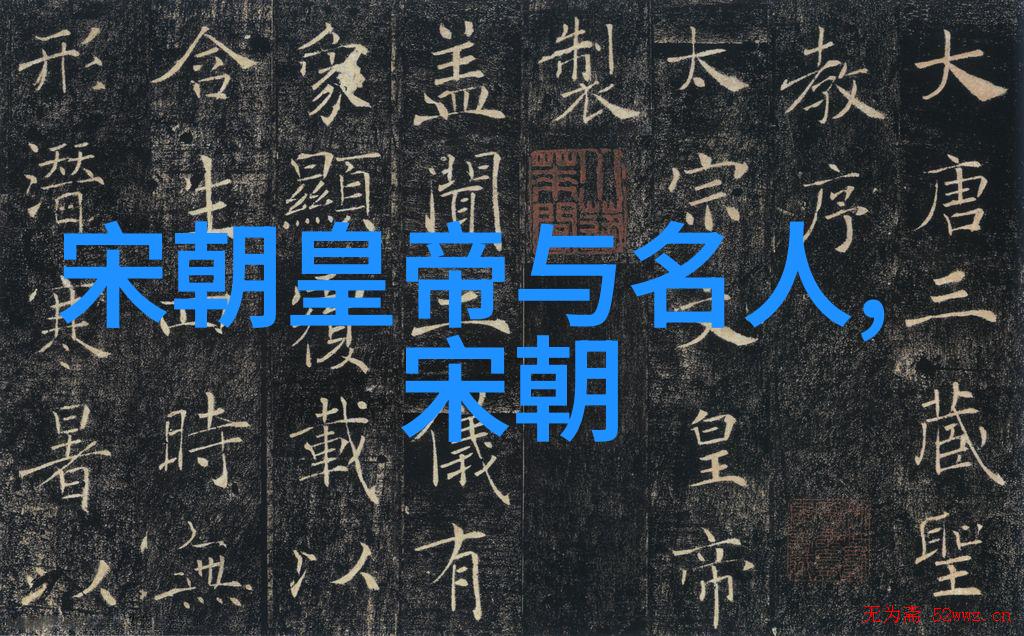 大唐三藏聖
教序
太宗文皇帝
製
盖聞二儀有
象顯覆載以
含生四時無
形潛寒暑以
宋朝皇帝与名人,
宋朝
无为斋 52wwz.cn